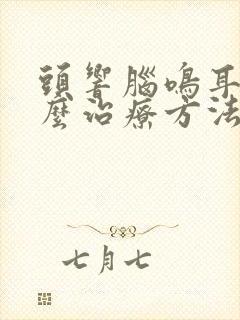 頭響腦鳴耳
麼治療方法
七月七